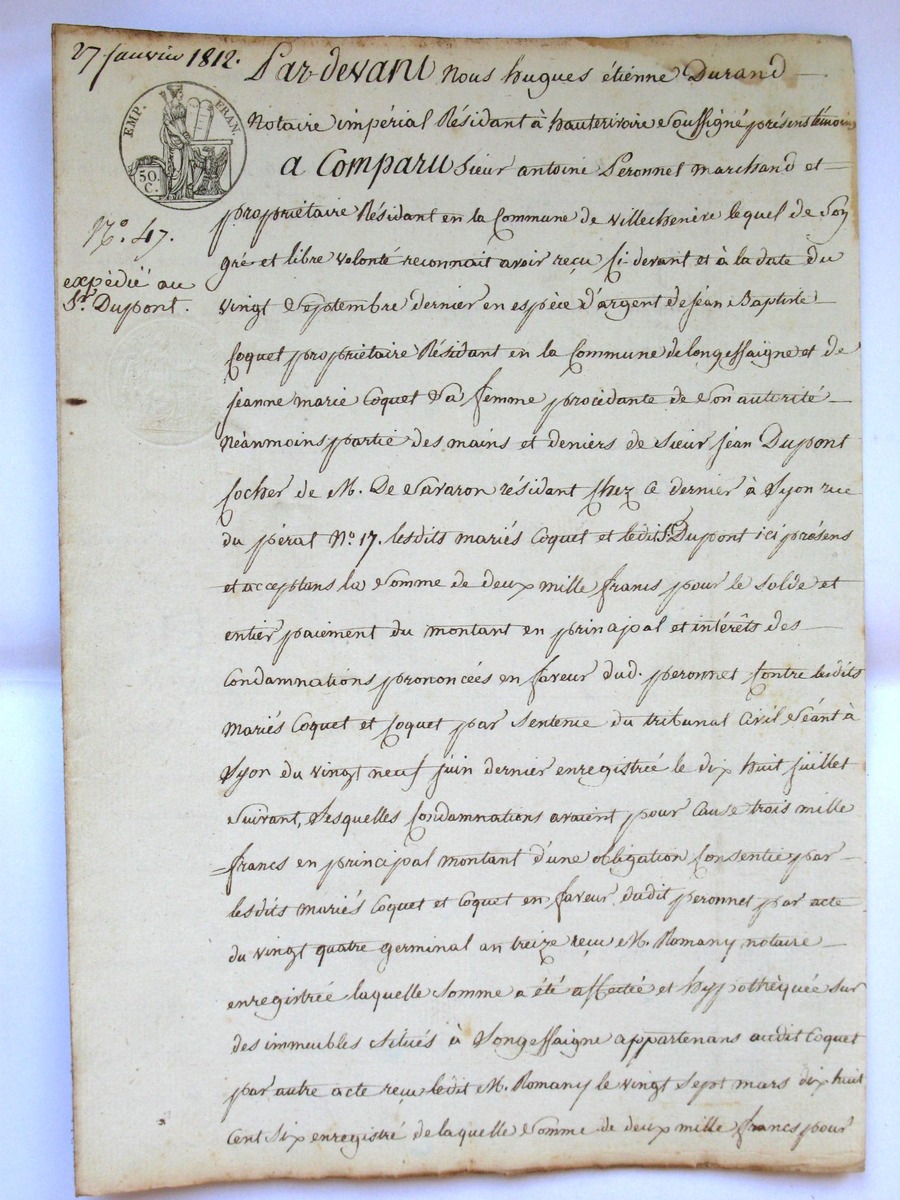 27 janvier 1812.
Par-devant Nous hugues étienne Durand
EMP. FRAN.
50.
C.
Notaire impérial Résidant à hauterivoire soussigné présens témoins
a Comparu Sieur antoine Peronnet marchand et
propriétaire Résidant en la Commune de villechenève lequel de son
N.o 47.
gré et libre volonté reconnait avoir reçu Ci-devant et à la date du
expédié au
Sr. Dupont.
vingt Septembre dernier en espèce d'argent de jean Baptiste
Coquet propriétaire Résidant en la Commune de longessaigne et de
jeanne marie Coquet sa femme procédante de son autorité
Néanmoins partie des mains et deniers de Sieur jean Dupont
Cocher de M. De Savaron résidant Chez Ce dernier à Lyon rue
du pérat N.o 17. lesdits mariés Coquet et ledit Sr. Dupont ici présens
et acceptans la somme de deux mille francs pour le solde et
entier paiement du montant en principal et intérêts des
Condamnations prononcées en faveur dud. peronnet Contre lesdits
mariés Coquet et Coquet par sentence du tribunal Civil séant à
Lyon du vingt neuf juin dernier enregistrée le dix huit juillet
Suivant, Lesquelles Condamnations avaient pour Cause trois mille
francs en principal montant d'une obligation Consentie par
lesdits mariés Coquet et Coquet en faveur dudit peronnet par acte
du vingt quatre germinal an treize reçu M. Romany notaire
enregistrée laquelle somme a été affectée et hypothèquée sur
des immeubles situés à Longessaigne appartenans audit Coquet
par autre acte reçu ledit M. Romany le vingt sept mars dix huit
Cent Six enregistré de laquelle somme de deux mille francs pour